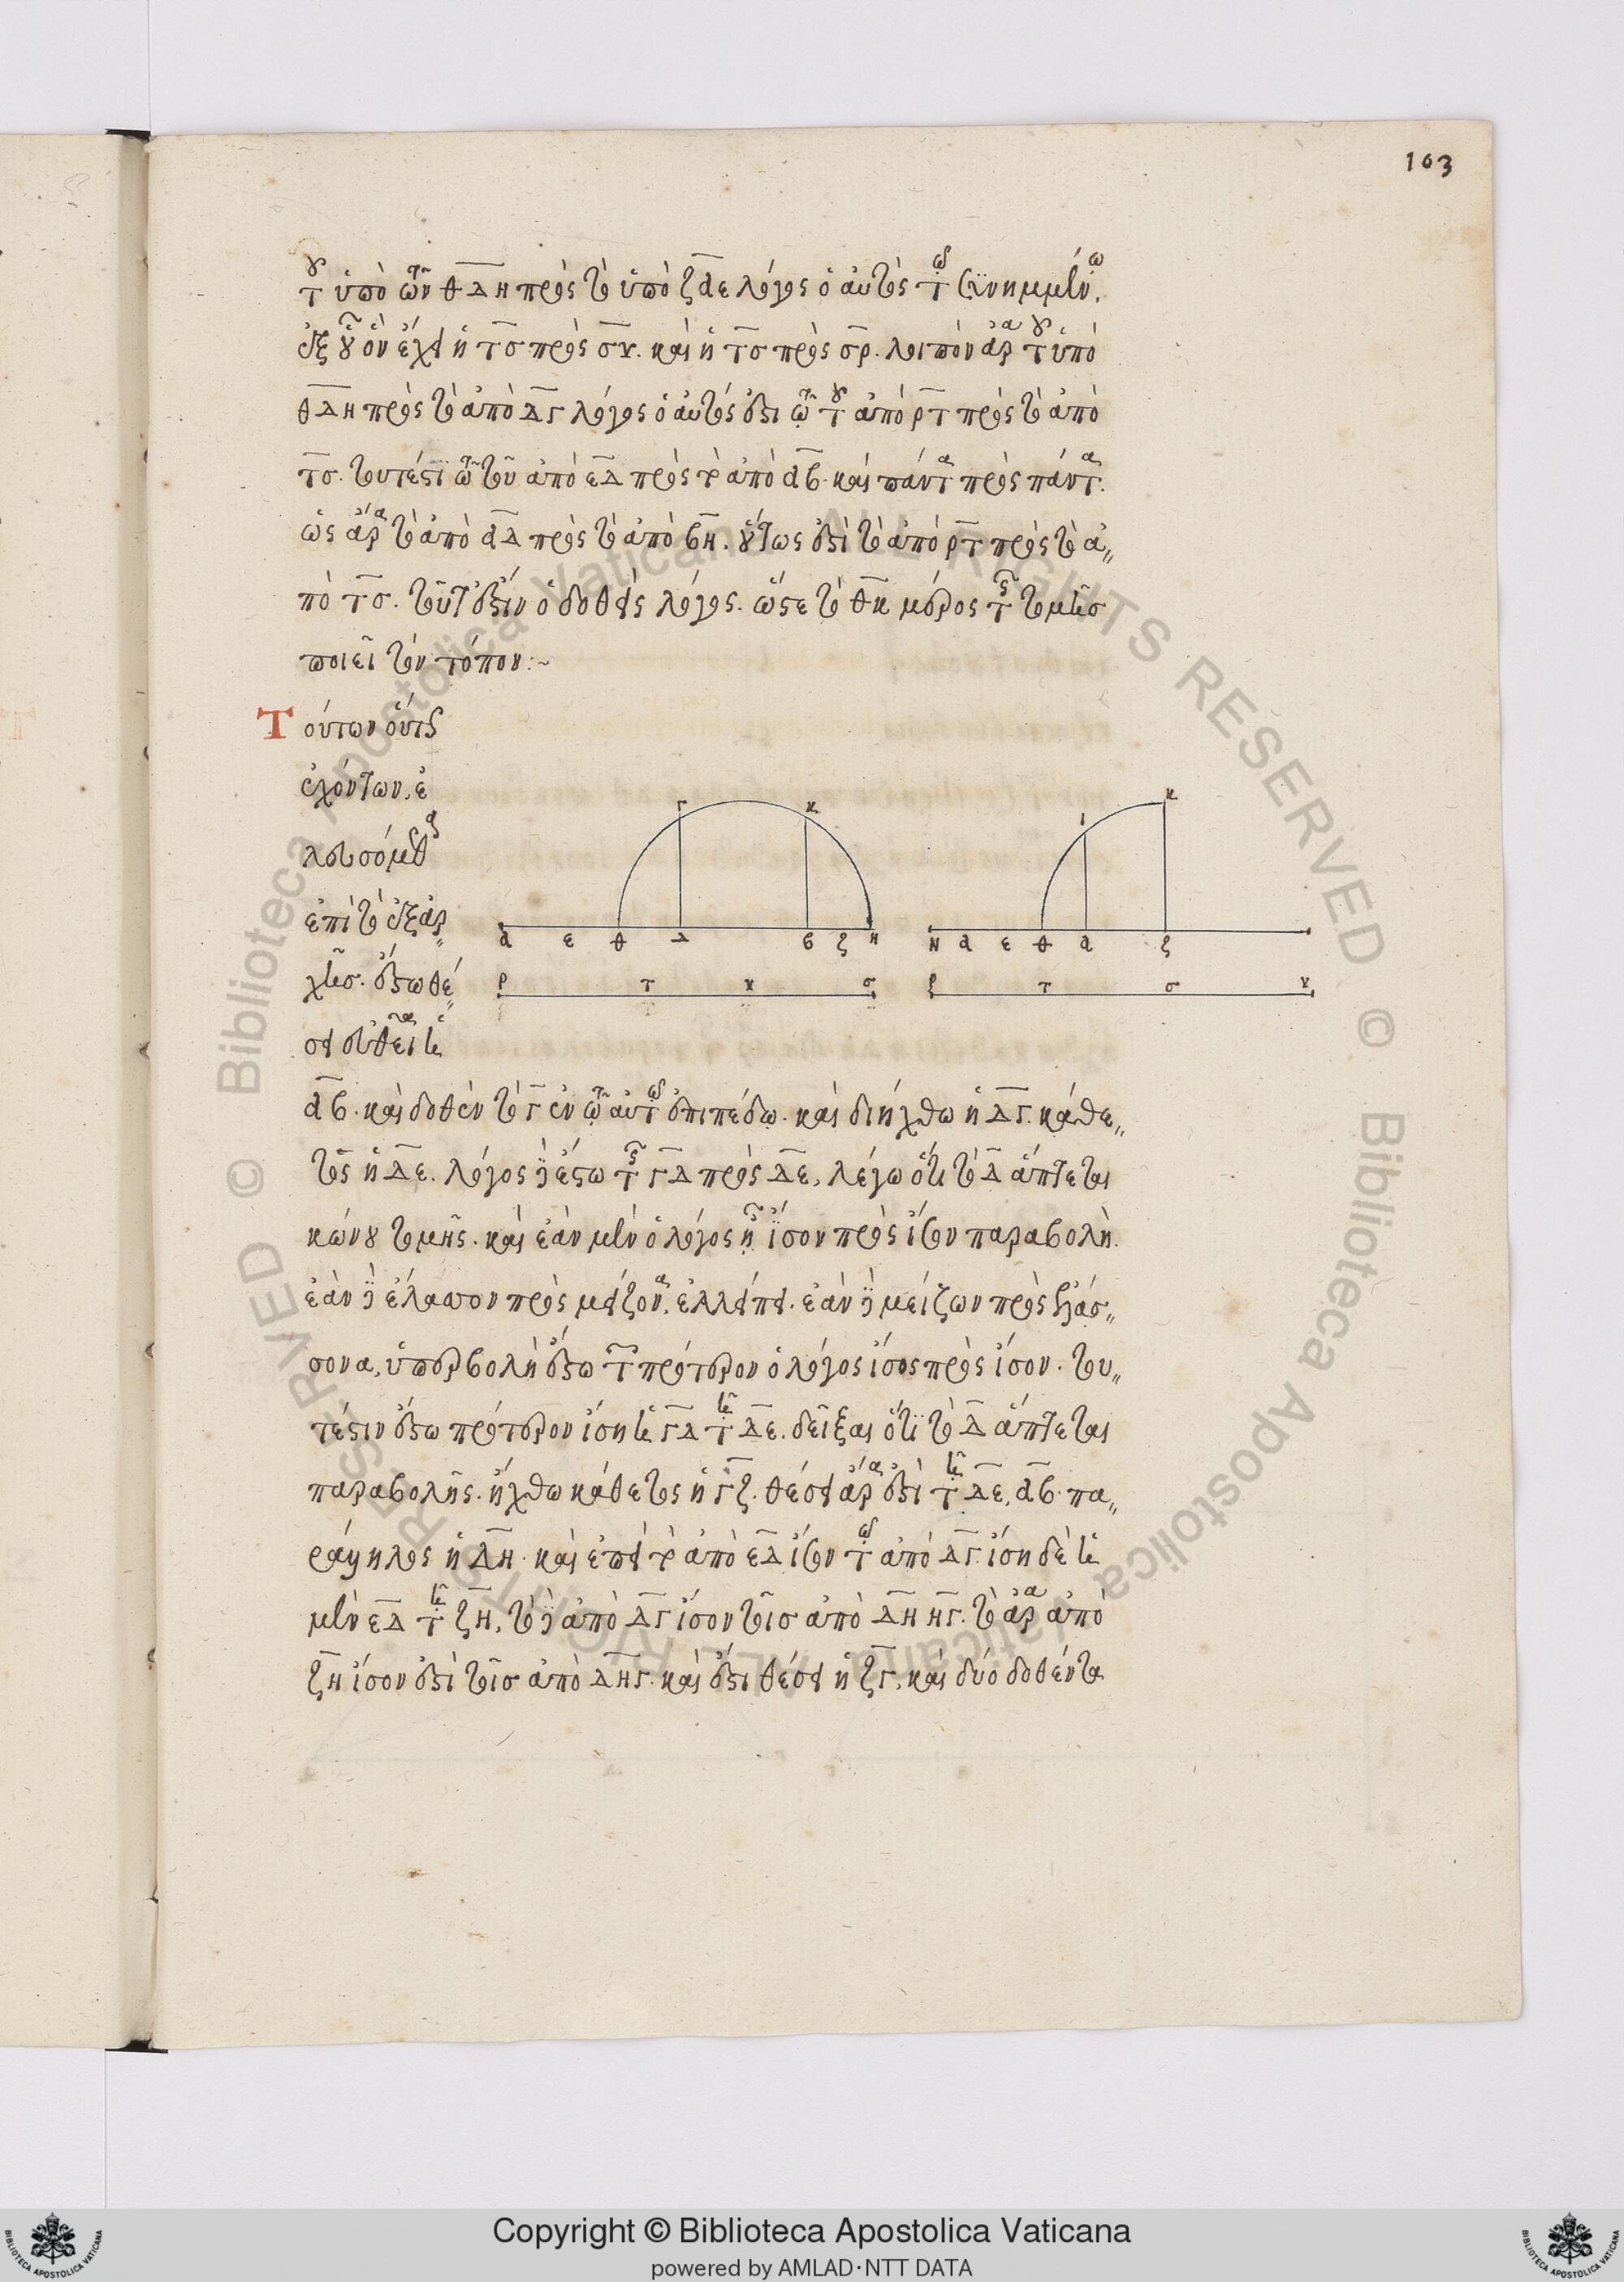 163
τοῦ ὑπὸ τῶν θ̅δ̅η̅ πρὸς τὸ ὑπὸ ζ̅α̅ε̅ λόγος ὁ αὐτὸς τῷ συνημμένῳ,
ἐξ οὗ ὃν ἔχει ἡ τ̅σ̅ πρὸς σ̅υ̅. καὶ ἡ τ̅σ̅ πρὸς σ̅ρ̅. λοιπὸν ἄρα τοῦ ὑπὸ
θ̅δ̅η̅ πρὸς τὸ ἀπὸ δ̅γ̅ λόγος ὁ αὐτός ἐστι τῷ τοῦ ἀπὸ ρ̅τ̅ πρὸς τὸ ἀπὸ
τ̅σ̅. τουτέστι τῷ τοῦ ἀπὸ ε̅δ̅ πρὸς τὸ ἀπὸ α̅β̅. καὶ πάντα πρὸς πάντα.
ὡς ἄρα τὸ ἀπὸ α̅δ̅ πρὸς τὸ ἀπὸ β̅η̅. οὕτως ἐστὶ τὸ ἀπὸ ρ̅τ̅ πρὸς τὸ ἀ〃
πὸ τ̅σ̅. τουτέστιν ὁ δοθεὶς λόγος. ὥστε τὸ θ̅κ̅ μέρος τῆς τομῆς
ποιεῖ τὸν τόπον:~
Τούτων οὕτως
ἐχόντων, ἐ
λευσόμεθα
ἐπὶ τὸ ἐξ ἀρ〃
χῆς. ἔστω θέ〃
σει εὐθεῖα ἡ
γ κ ι κ
α ε θ δ β ζ η η α ε θ δ ζ
ρ τ υ σ ρ τ σ υ
α̅β̅. καὶ δοθὲν τὸ γ̅ ἐν τῷ αὐτῷ ἐπιπέδῳ. καὶ διήχθω ἡ δ̅γ̅. κάθε〃
τος ἡ δ̅ε̅. λόγος δὲ ἔστω τῆς γ̅δ̅ πρὸς δ̅ε̅, λέγω ὅτι τὸ δ̅ ἅπτεται
κώνου τομῆς. καὶ ἐὰν μὲν ὁ λόγος ᾖ ἴσου πρὸς ἴσον παραβολὴ.
ἐὰν δὲ ἐλασσον πρὸς μείζονα, ἐλλείπει. ἐὰν δὲ μείζων πρὸς ἐλάσ〃
σονα, ὑπερβολὴ ἔστω τ πρότερον ὁ λόγος ἴσος πρὸς ἴσον. του〃
τέστιν ἔστω πρότερον ἴση ἡ γ̅δ̅ τῇ δ̅ε̅. δεῖξαι ὅτι τὸ δ̅ ἅπτεται
παραβολῆς. ἤχθω κάθετος ἡ γ̅ζ̅. θέσει ἄρα ἐστὶ τῇ δ̅ε̅, α̅β̅ πα〃
ράλληλος ἡ δ̅η̅. καὶ ἐπεὶ τὸ ἀπὸ ε̅δ̅ ἴσον τῷ ἀπὸ δ̅γ̅ ἴση δὲ ἡ
μὲν ε̅δ̅ τῇ ζ̅η̅, τὸ δὲ ἀπὸ δ̅γ̅ ἴσον τοῖς ἀπὸ δ̅η̅ η̅γ̅. τὸ ἄρα ἀπὸ
ζ̅η̅ ἴσον ἐστὶ τοῖς ἀπὸ δ̅η̅γ̅. καὶ ἔστι θέσει ἡ ζ̅γ̅, καὶ δύο δοθέντα
Copyright © Biblioteca Apostolica Vaticana
powered by AMLAD·NTT DATA